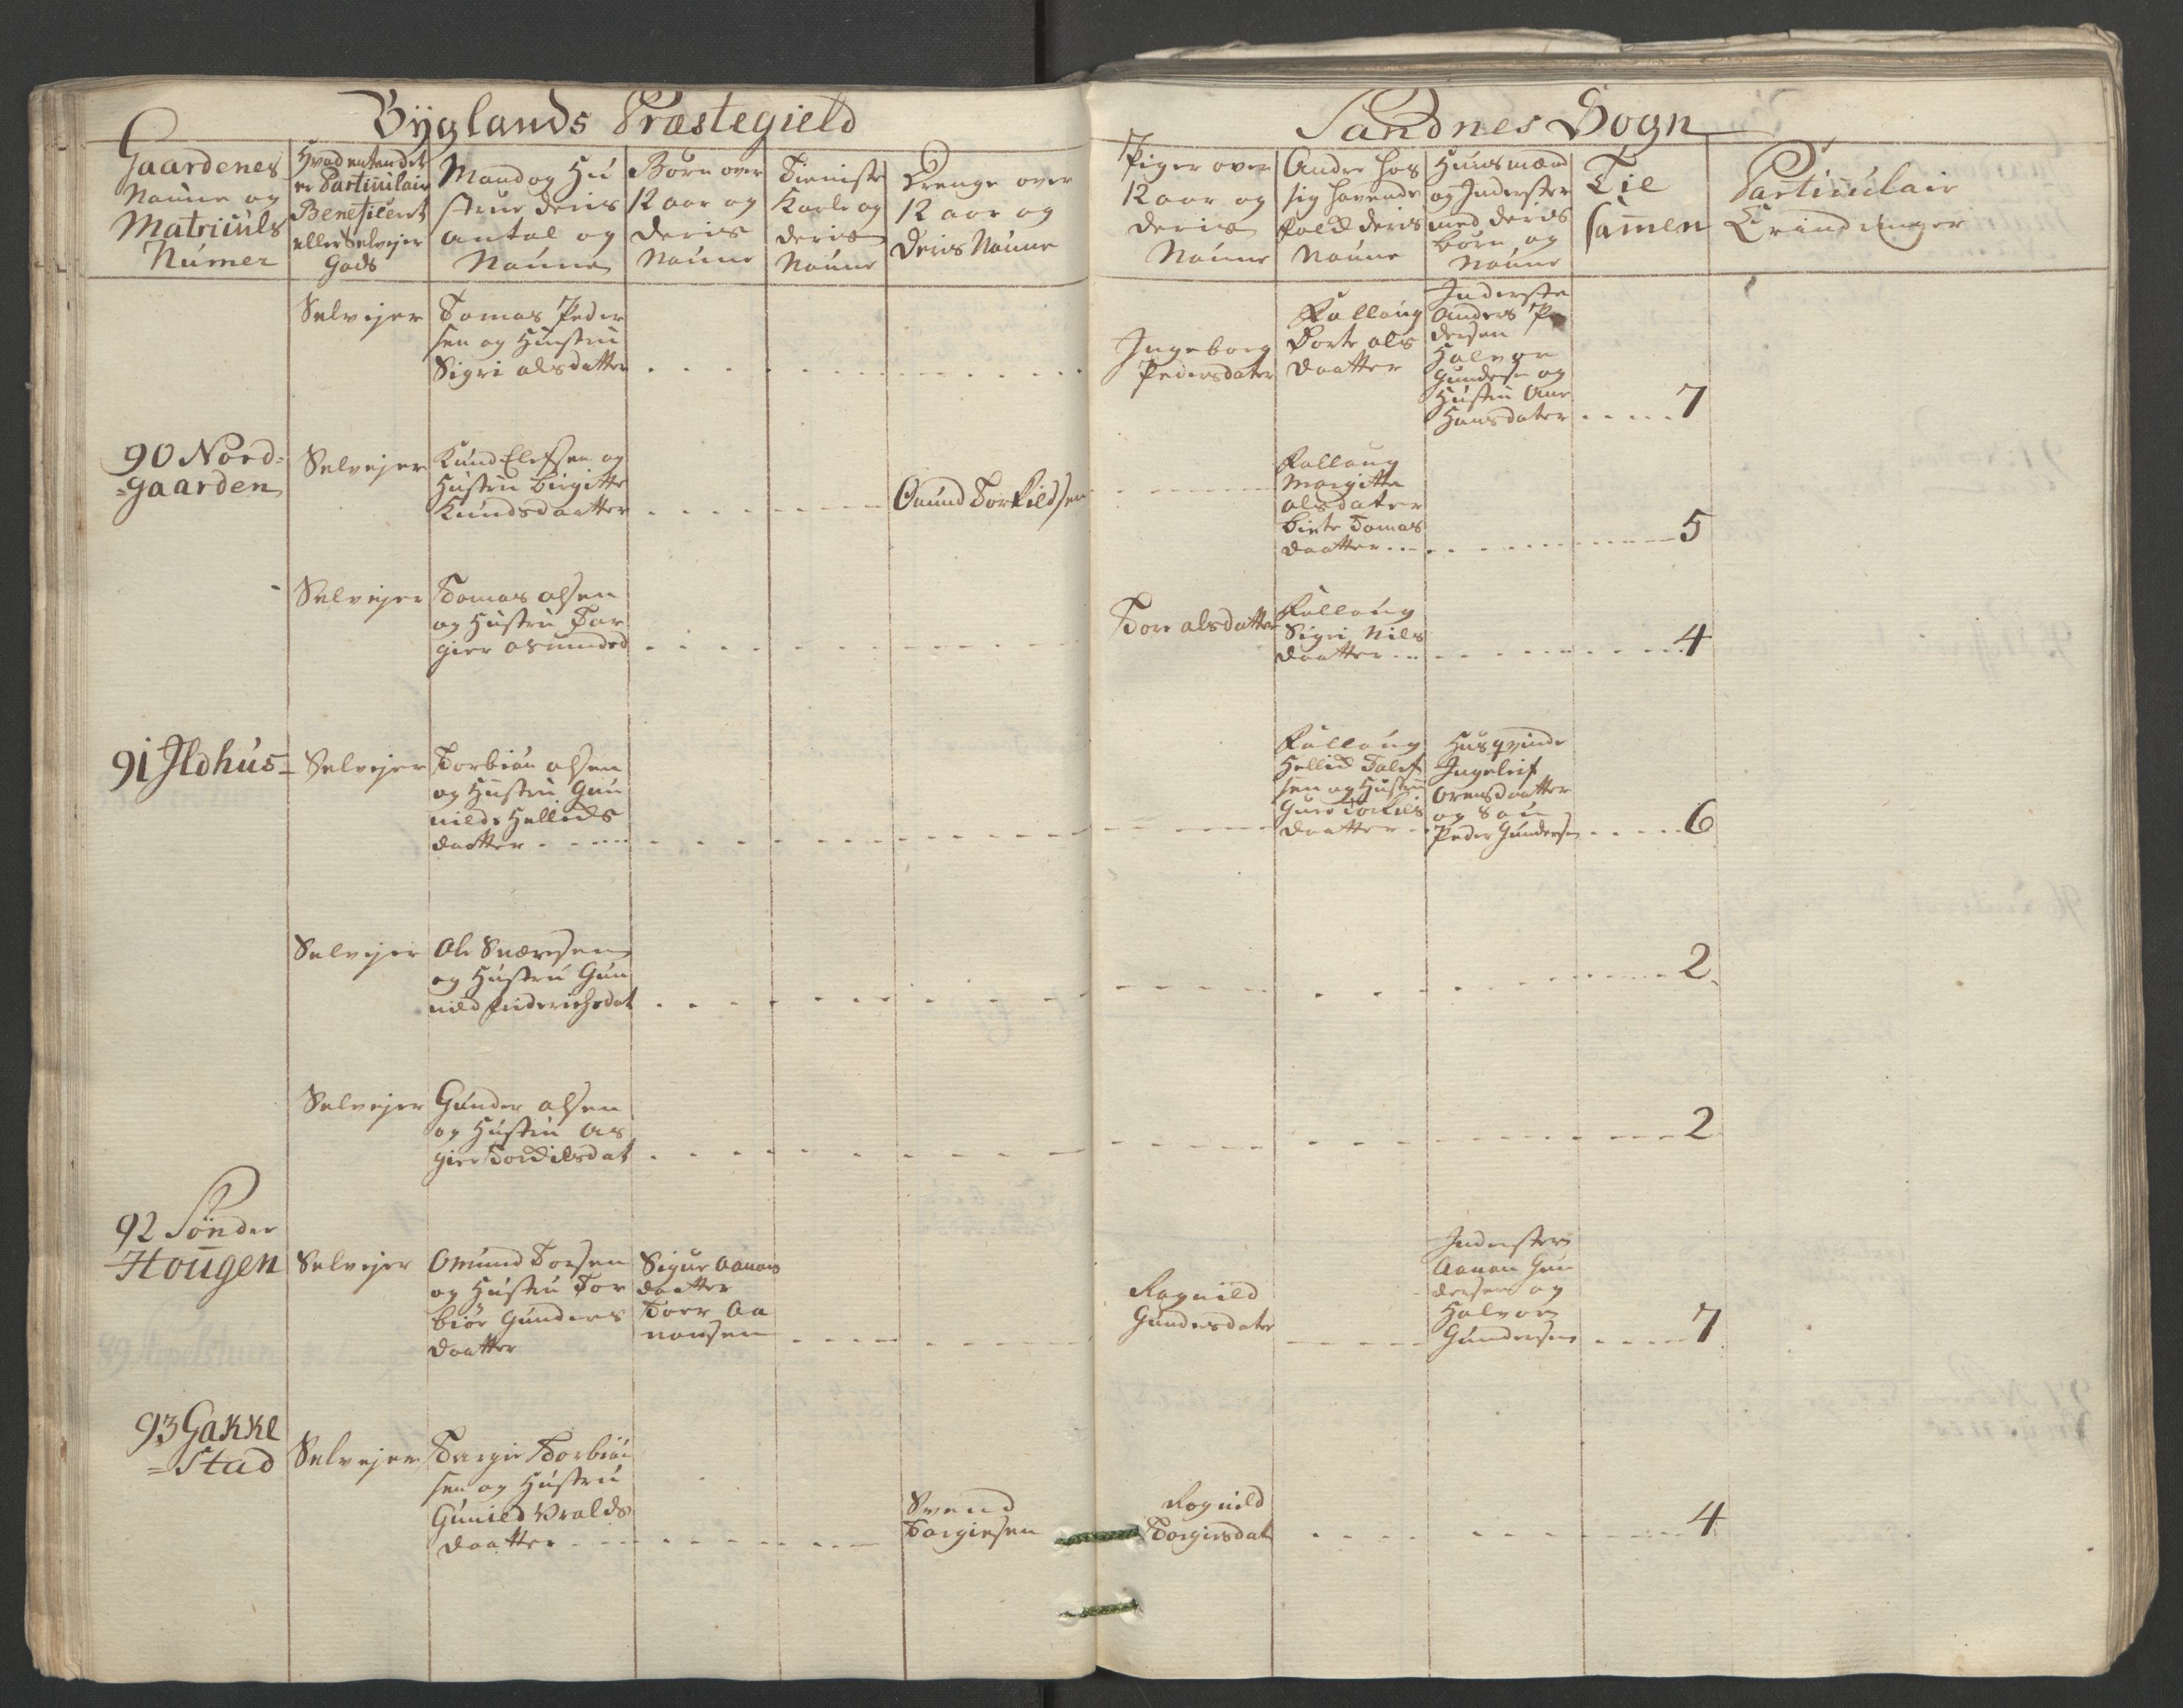 Bÿglands Præstegield
Sandnes Sogn
Gaardenes
Naune og
Matriculs
Numer
Hvad enten det
er Particulair
Beneficeret
eller Selvejer
Gods
Mand og Hu
strue deris
antal og
Naune
Børn over
12 aar og
deris
Naune
Tieniste
Karle og
deris
Naune
Drenge over
12 aar og
deris Naune
Piger over
12 aar og
deris
Naune
Andre hos
sig havende
Folk deris
Naune
Huusmænd
og Inderster
med deris
børn og
Naune
Til
samen
Particulair
Erindringer
Selvejer
Tomas Peder
sen og Hustru
Sigri olsdatter
Ingeborg
Pedersdater
Follaug
Dorte ols
daatter
Inderste
Anders Pe
dersen
Halvor
Gunderse og
Hustru Ane
Hansdater
7
90 Nord=
=gaarden
Selvejer
Knud Elefsen og
Hustru birgitte
Knudsdaatter
Omund Torkildsen
Follaug
Margitte
olsdater
birte Tomas
daatter
5
Selvejer
Tomas olsen
og Hustru Tar
gier osmundsd
Tore olsdatter
Follaug
Sigri Nils
daatter
4
91 Ildhus=
Selvejer
Torbiøn olsen
og Hustru Gun
nild Hellids
daatter
Follaug
Hellid Tolef
sen og Hustru
Guro Torkils
daatter
Husqvinde
Ingeleif
Orensdaatter
og Søn
Peder Gundersen
6
Selvejer
Ole Sværesen
og Hustru Gun
nild
2
Selvejer
Gunder olsen
og Hustru As
gier Torkilsdat
2
92 Sønder
Hougen
Selvejer
Omund Torsen
og Hustru Tor
biør Gunders
daatter
Sigur Aanons
daatter
Torr Aa
nonsen
Ragnild
Gundersdater
Inderster
Aanon Gun
dersen og
Halvor
Gundersen
7
93 Gakke
=stad
Selvejer
Targie Torbiøn
sen og Hustru
Gunild Vralds
daatter
Svend
Targiesen
Ragnild
Torgiersdat
4